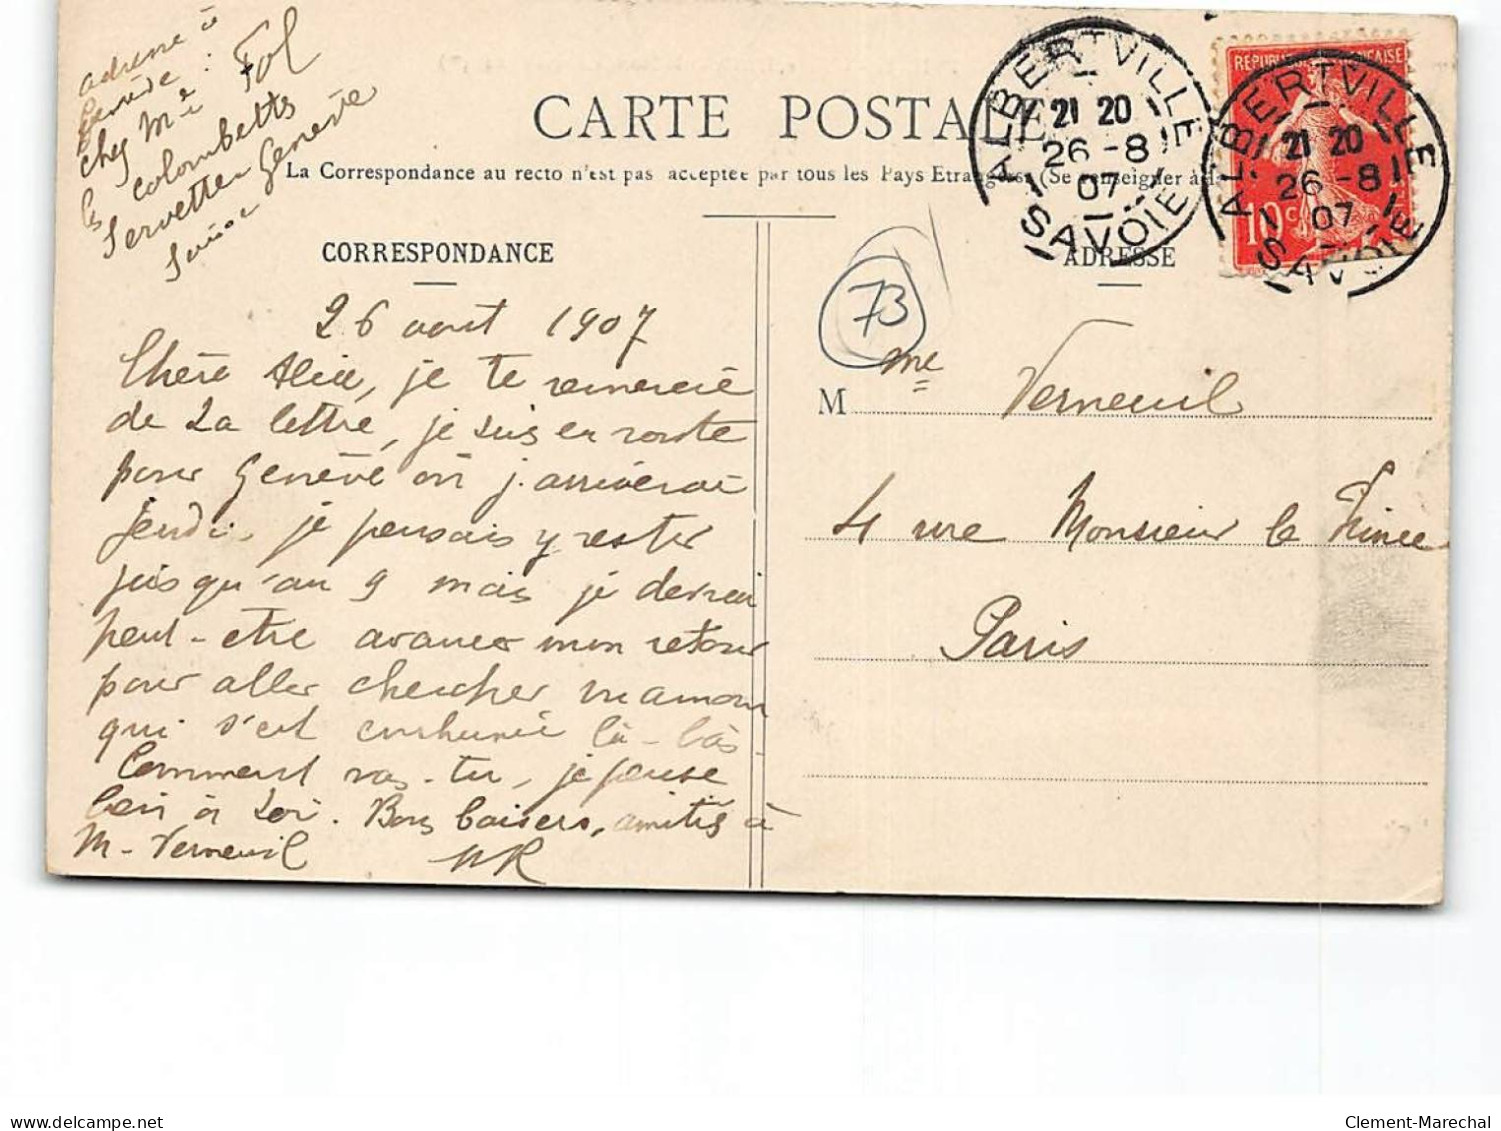 adresse à
Genève :
chez Me Fol
les colombetts
Servette Genève
Suisse
CARTE POSTALE
La Correspondance au recto n'est pas acceptée par tous les Pays Etrangers (Se renseigner à la
CORRESPONDANCE
ADRESSE
ALBERTVILLE
21 20
26 -8
07
SAVOIE
ALBERTVILLE
21 20
26 -8
07
SAVOIE
10 c
73
26 aout 1907
Chère Alice, je te remercie
de ta lettre, je suis en route
pour Genève où j'arriverai
jeudi, je pensais y rester
jusqu'au 9 mais je devrai
peut-etre avancer mon retour
pour aller chercher maman
qui s'est enrhumée là-bas.
Comment vas-tu, je pense
bien à toi. Bons baisers, amitiés à
M. Verneuil
M me Verneuil
4 rue Monsieur le Prince
Paris
Clement-Marechal
delcampe.net